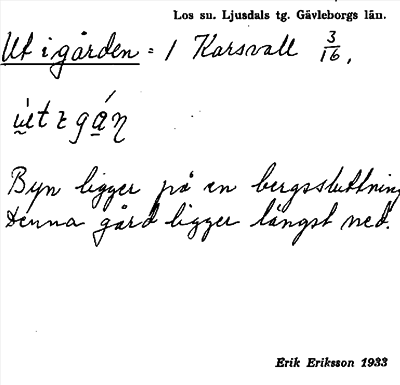 Los sn. Ljusdals tg. Gävleborgs län.
Ut i gården = 1 Karsvall 3/16.
Byn ligger på en bergssluttning
denna gård ligger längst ned.
Erik Eriksson 1933